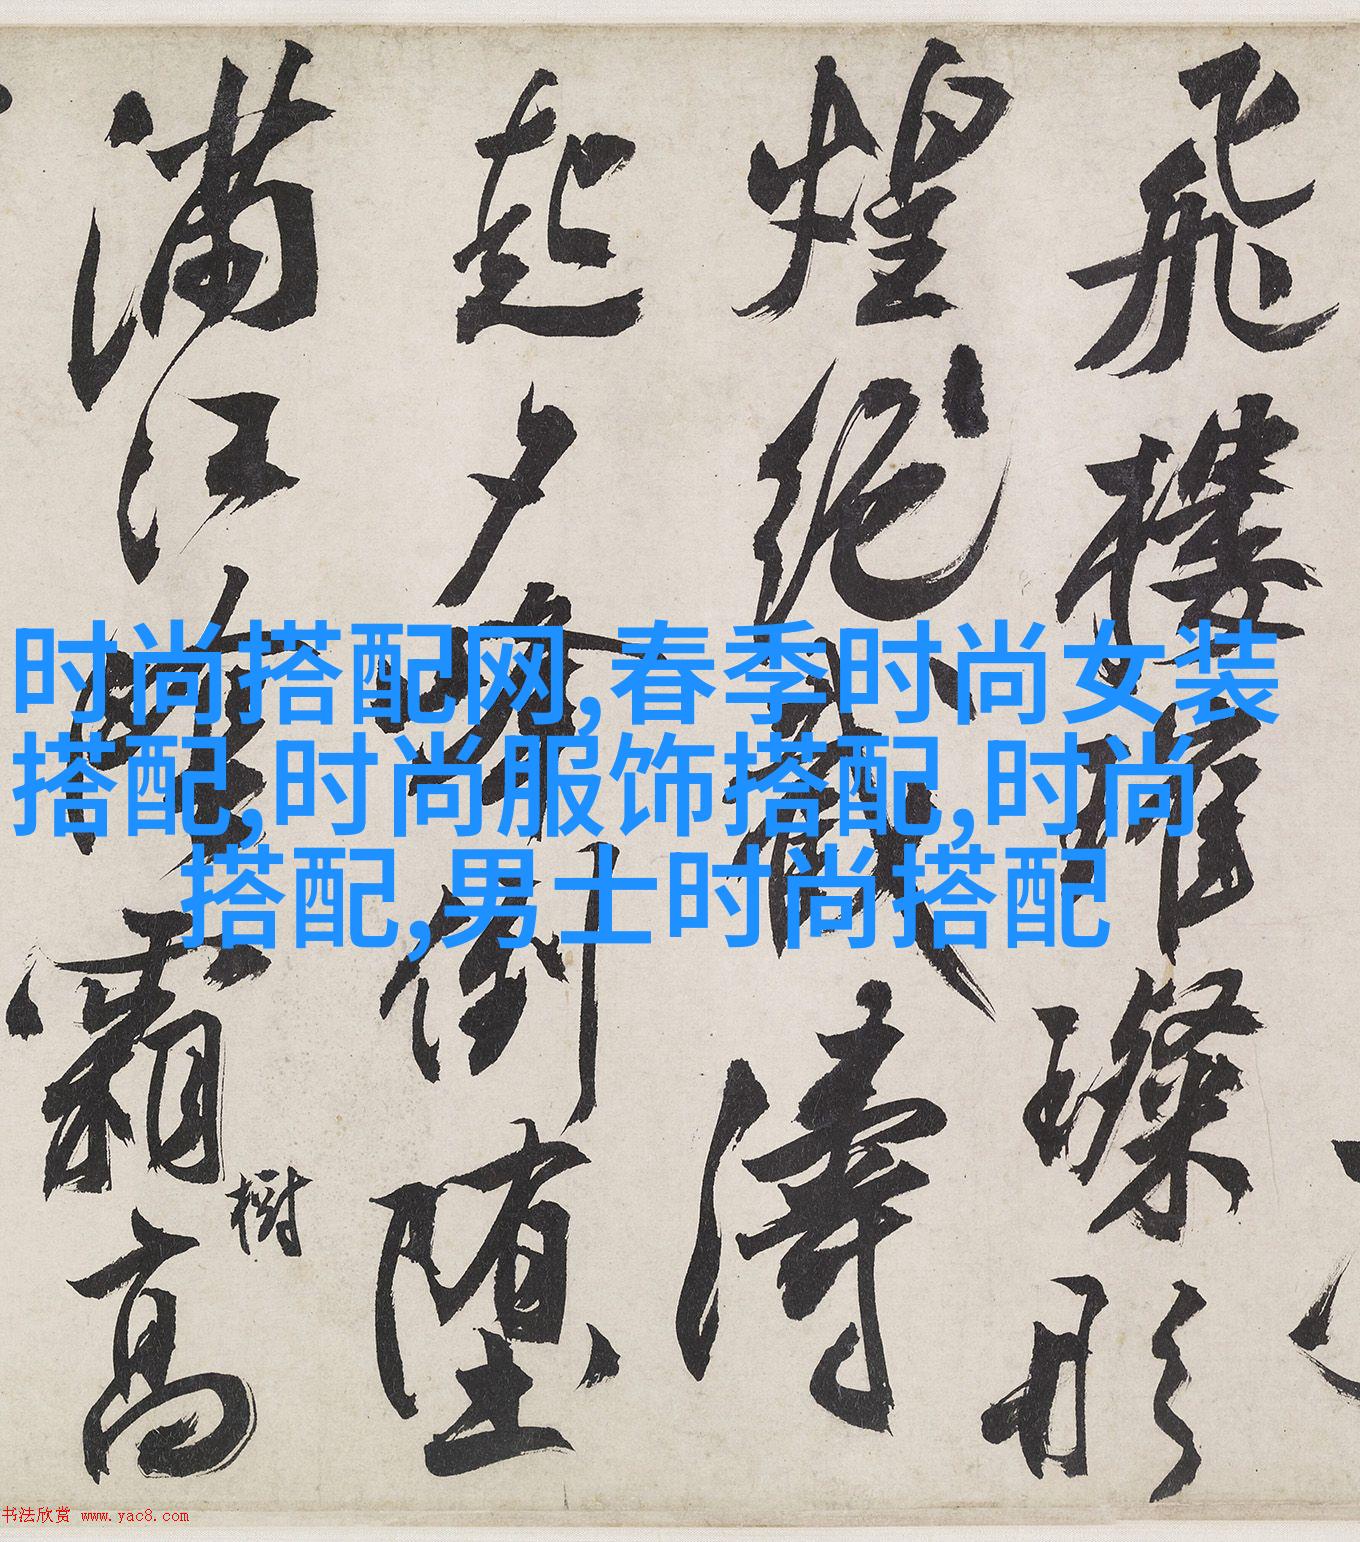 飛樓璨彤
煌絕濤
起夕倒墮
滿江霜高
樹
时尚搭配网,春季时尚女装
搭配,时尚服饰搭配,时尚
搭配,男士时尚搭配
书法欣赏 www.yac8.com